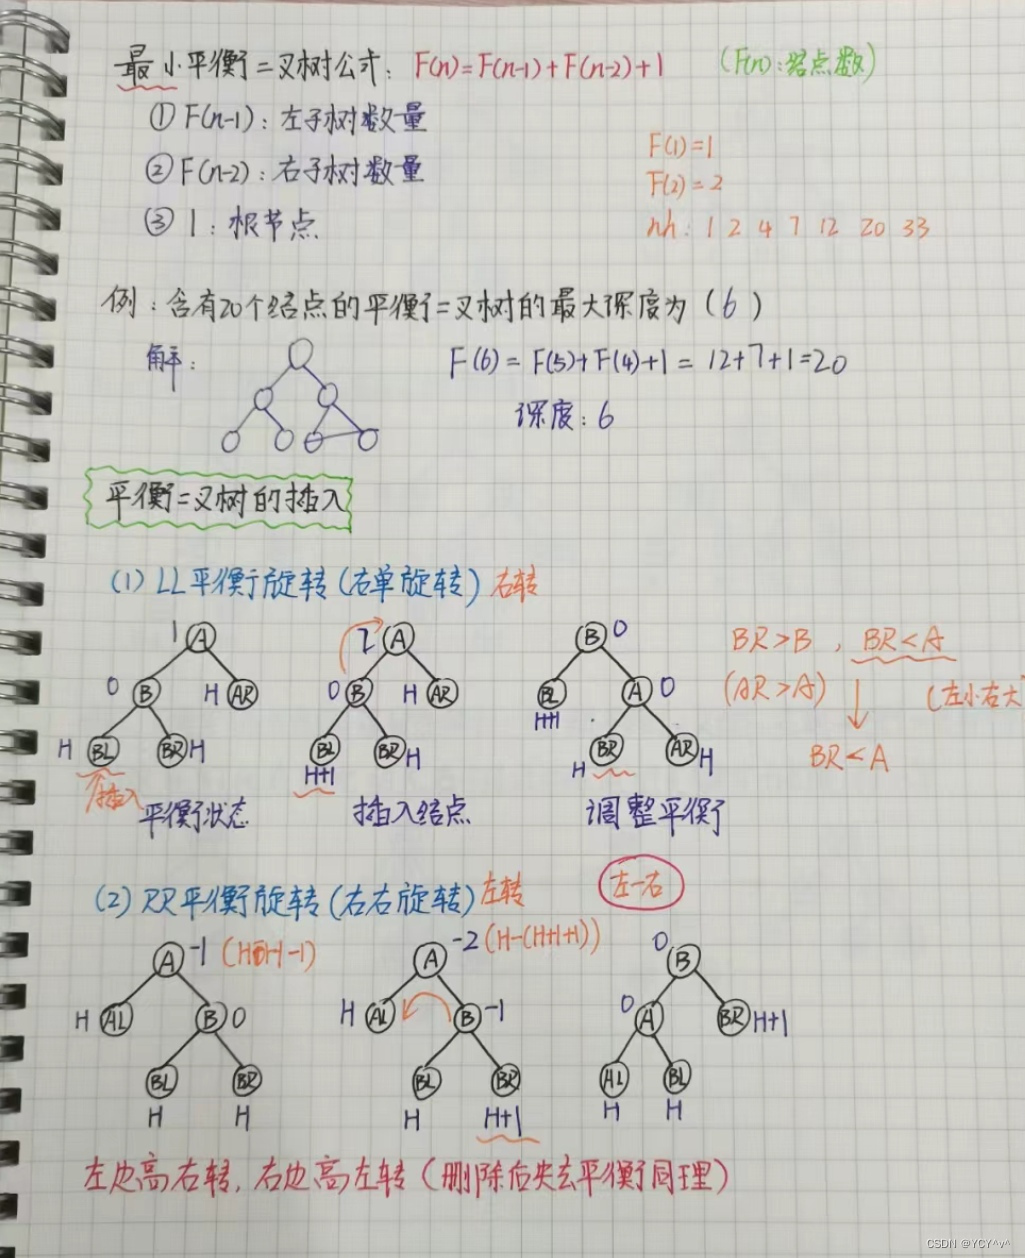 最小平衡二叉树公式: F(n)=F(n-1)+F(n-2)+1 (F(n):结点数)
① F(n-1): 左子树数量
② F(n-2): 右子树数量
③ 1: 根节点
F(1)=1
F(2)=2
nh: 1 2 4 7 12 20 33
例: 含有20个结点的平衡二叉树的最大深度为(6)
解: F(6)=F(5)+F(4)+1=12+7+1=20
深度: 6
平衡二叉树的插入
(1) LL平衡旋转(右单旋转) 右转
1 A 2 A B 0
0 B H AR 0 B H AR BL A 0
H BL BR H BL BR H BR AR
H+1 H H
插入
平衡状态 插入结点 调整平衡
BR>B, BR<A
(AR>A) (左小右大
BR<A
(2) RR平衡旋转(右右旋转) 左转 左-右
A -1 A -2 (H-(H+1+1)) 0 B
H AL B 0 H AL B -1 0 A BR H+1
BL BR BL BR AL BL
H H H H+1 H H
左边高右转, 右边高左转(删除后失去平衡同理)
CSDN @YCY^v^